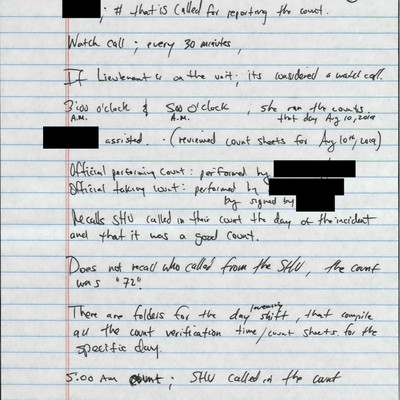 ; # that is called for reporting the count.
Watch call ; every 30 minutes,
If Lieutenant is on the unit; its considered a watch call.
3:00 o'clock & 5:00 o'clock , she ran the counts
A.M. A.M. that day Aug 10, 2019
assisted. · (reviewed count sheets for Aug 10th, 2019)
Official performing count: performed by
Official taking count: performed by
by signed by
Recalls SHU called in their count the day of the incident
and that it was a good count.
Does not recall who called from the SHU, the count
was "72".
There are folders for the day/ shift, that compile
all the count verification time/count sheets for the
specific day.
5:00 AM count ; SHU called in the count